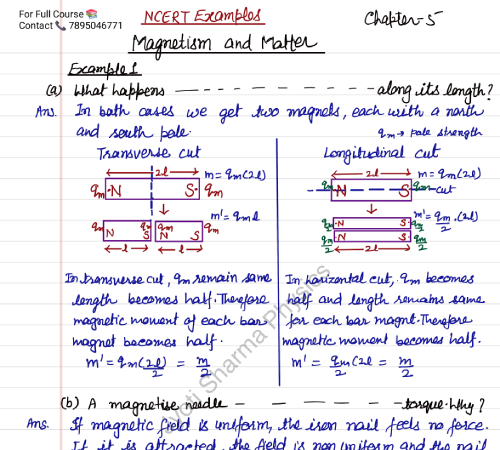 For Full Course 📚
Contact 📞 7895046771
NCERT Examples
Chapter-5
Magnetism and Matter
Example 1
(a) What happens — - - - - - - - - along its length?
Ans. In both cases we get two magnets, each with a north
and south pole.
qm → pole strength
Transverse cut
2l
m = qm(2l)
qm N S qm
m' = qml
qm N S qm qm N S qm
l l
In transverse cut, qm remain same
length becomes half. Therefore
magnetic moment of each bar
magnet becomes half.
m' = qm(2l)/2 = m/2
Longitudinal cut
2l
m = qm(2l)
qm N S qm cut
m' = qm/2 .(2l)
qm/2 N S qm/2
qm/2 N S qm/2
2l
In horizontal cut, qm becomes
half and length remains same
for each bar magnt. Therefore
magnetic moment becomes half.
m' = qm/2 (2l = m/2
Jyoti Sharma Physics
(b) A magnetise needle - — - - - - - torque. Why?
Ans. If magnetic field is uniform, the iron nail feels no force.
If it is attracted, the field is non uniform and the nail